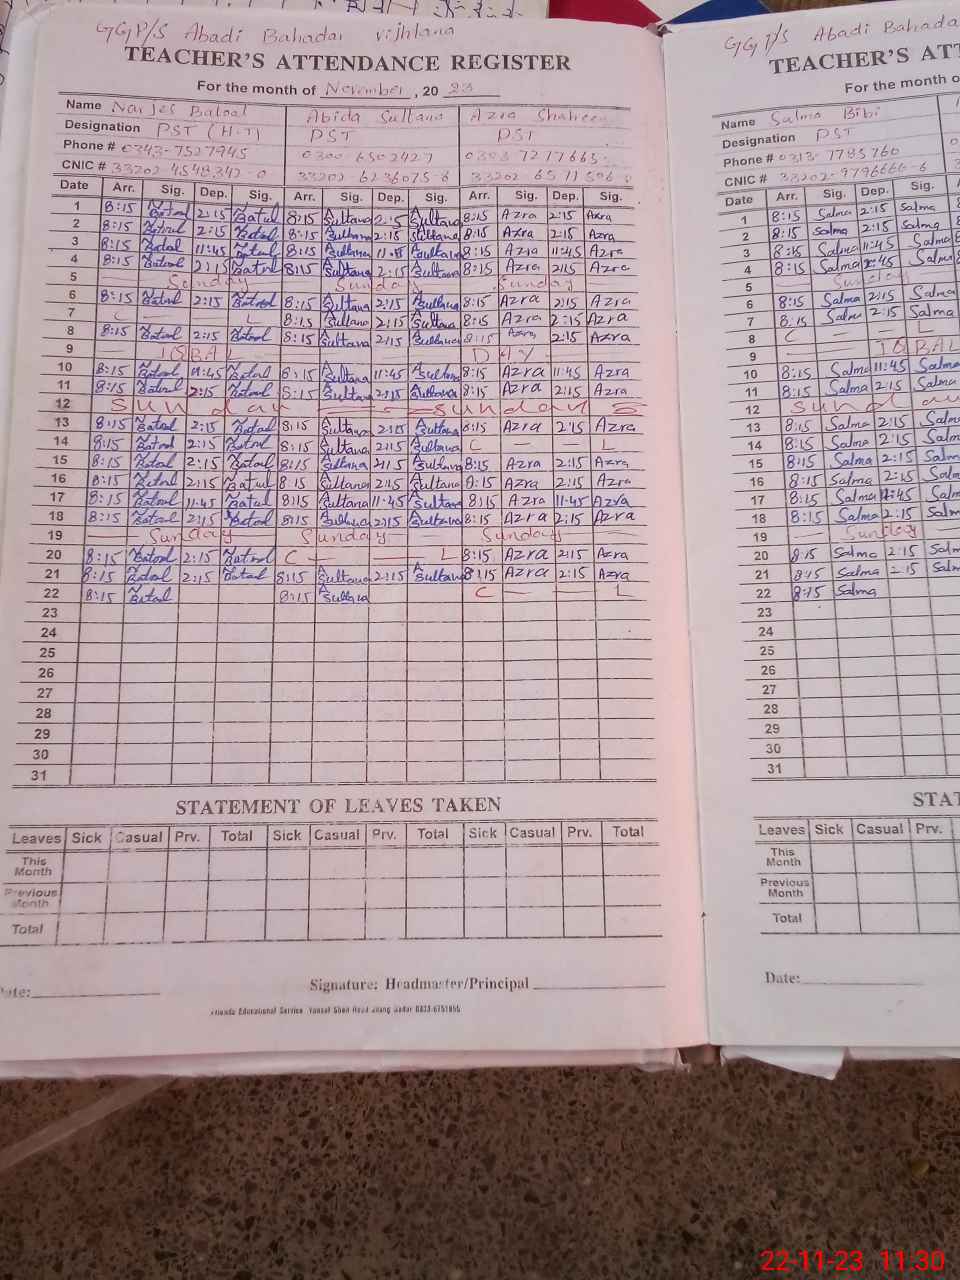 GGP/S Abadi Bahadar
TEACHER'S ATTENDANCE REGISTER
For the month of November, 2023
Name Narjes Batool Abida Sultana Azra Shaheen
Designation PST (H-T) PST PST
Phone # 0343-7527945 0300-6502427
CNIC # 33202-4548342-0 33202-6236075-6
Date Arr. Sig. Dep. Sig. Arr. Sig. Dep. Sig. Arr. Sig. Dep. Sig.
1 8:15 Batool 2:15 Batul 8:15 Sultana 2:15 Sultana 8:15 Azra 2:15 Azra
2 8:15 Batool 2:15 Batool 8:15 Sultana 2:15 Sultana 8:15 Azra 2:15 Azra
3 8:15 Batool 11:45 Batul 8:15 Sultana 11:45 Sultana 8:15 Azra 11:45 Azra
4 8:15 Batool 2:15 Batool 8:15 Sultana 2:15 Sultana 8:15 Azra 2:15 Azra
5 Sunday Sunday Sunday
6 8:15 Batool 2:15 Batool 8:15 Sultana 2:15 Sultana 8:15 Azra 2:15 Azra
7 C — — L 8:15 Sultana 2:15 Sultana 8:15 Azra 2:15 Azra
8 8:15 Batool 2:15 Batool 8:15 Sultana 2:15 Sultana 8:15 Azra 2:15 Azra
9 IQBAL DAY
10 8:15 Batool 11:45 Batool 8:15 Sultana 11:45 Sultana 8:15 Azra 11:45 Azra
11 8:15 Batool 2:15 Batool 8:15 Sultana 2:15 Sultana 8:15 Azra 2:15 Azra
12 Sunday Sunday
13 8:15 Batool 2:15 Batool 8:15 Sultana 2:15 Sultana 8:15 Azra 2:15 Azra
14 8:15 Batool 2:15 Batool 8:15 Sultana 2:15 Sultana C — — L
15 8:15 Batool 2:15 Batool 8:15 Sultana 2:15 Sultana 8:15 Azra 2:15 Azra
16 8:15 Batool 2:15 Batul 8:15 Sultana 2:15 Sultana 8:15 Azra 2:15 Azra
17 8:15 Batool 11:45 Batul 8:15 Sultana 11:45 Sultana 8:15 Azra 11:45 Azra
18 8:15 Batool 2:15 Batool 8:15 Sultana 2:15 Sultana 8:15 Azra 2:15 Azra
19 Sunday Sunday Sunday
20 8:15 Batool 2:15 Batool C — — L 8:15 Azra 2:15 Azra
21 8:15 Batool 2:15 Batool 8:15 Sultana 2:15 Sultana 8:15 Azra 2:15 Azra
22 8:15 Batool 8:15 Sultana C — — L
23
24
25
26
27
28
29
30
31
STATEMENT OF LEAVES TAKEN
Leaves Sick Casual Prv. Total Sick Casual Prv. Total Sick Casual Prv. Total
This Month
Previous Month
Total
Date:
Signature: Headmaster/Principal
GGP/S Abadi Bahada
TEACHER'S ATT
For the month o
Name Salma Bibi
Designation PST
Phone # 0313-7785760
CNIC # 33202-9796666-6
Date Arr. Sig. Dep. Sig.
1 8:15 Salma 2:15 Salma
2 8:15 Salma 2:15 Salma
3 8:15 Salma 11:45 Salma
4 8:15 Salma 2:45 Salma
5 Sunday
6 8:15 Salma 2:15 Salma
7 8:15 Salma 2:15 Salma
8 C — L
9 IQBAL
10 8:15 Salma 11:45 Salma
11 8:15 Salma 2:15 Salma
12 Sunday
13 8:15 Salma 2:15 Salma
14 8:15 Salma 2:15 Salma
15 8:15 Salma 2:15 Salma
16 8:15 Salma 2:15 Salma
17 8:15 Salma 11:45 Salma
18 8:15 Salma 2:15 Salma
19 Sunday
20 8:15 Salma 2:15 Salm
21 8:15 Salma 2:15 Salm
22 8:15 Salma
23
24
25
26
27
28
29
30
31
STAT
Leaves Sick Casual Prv.
This Month
Previous Month
Total
Date:
22-11-23 11:30